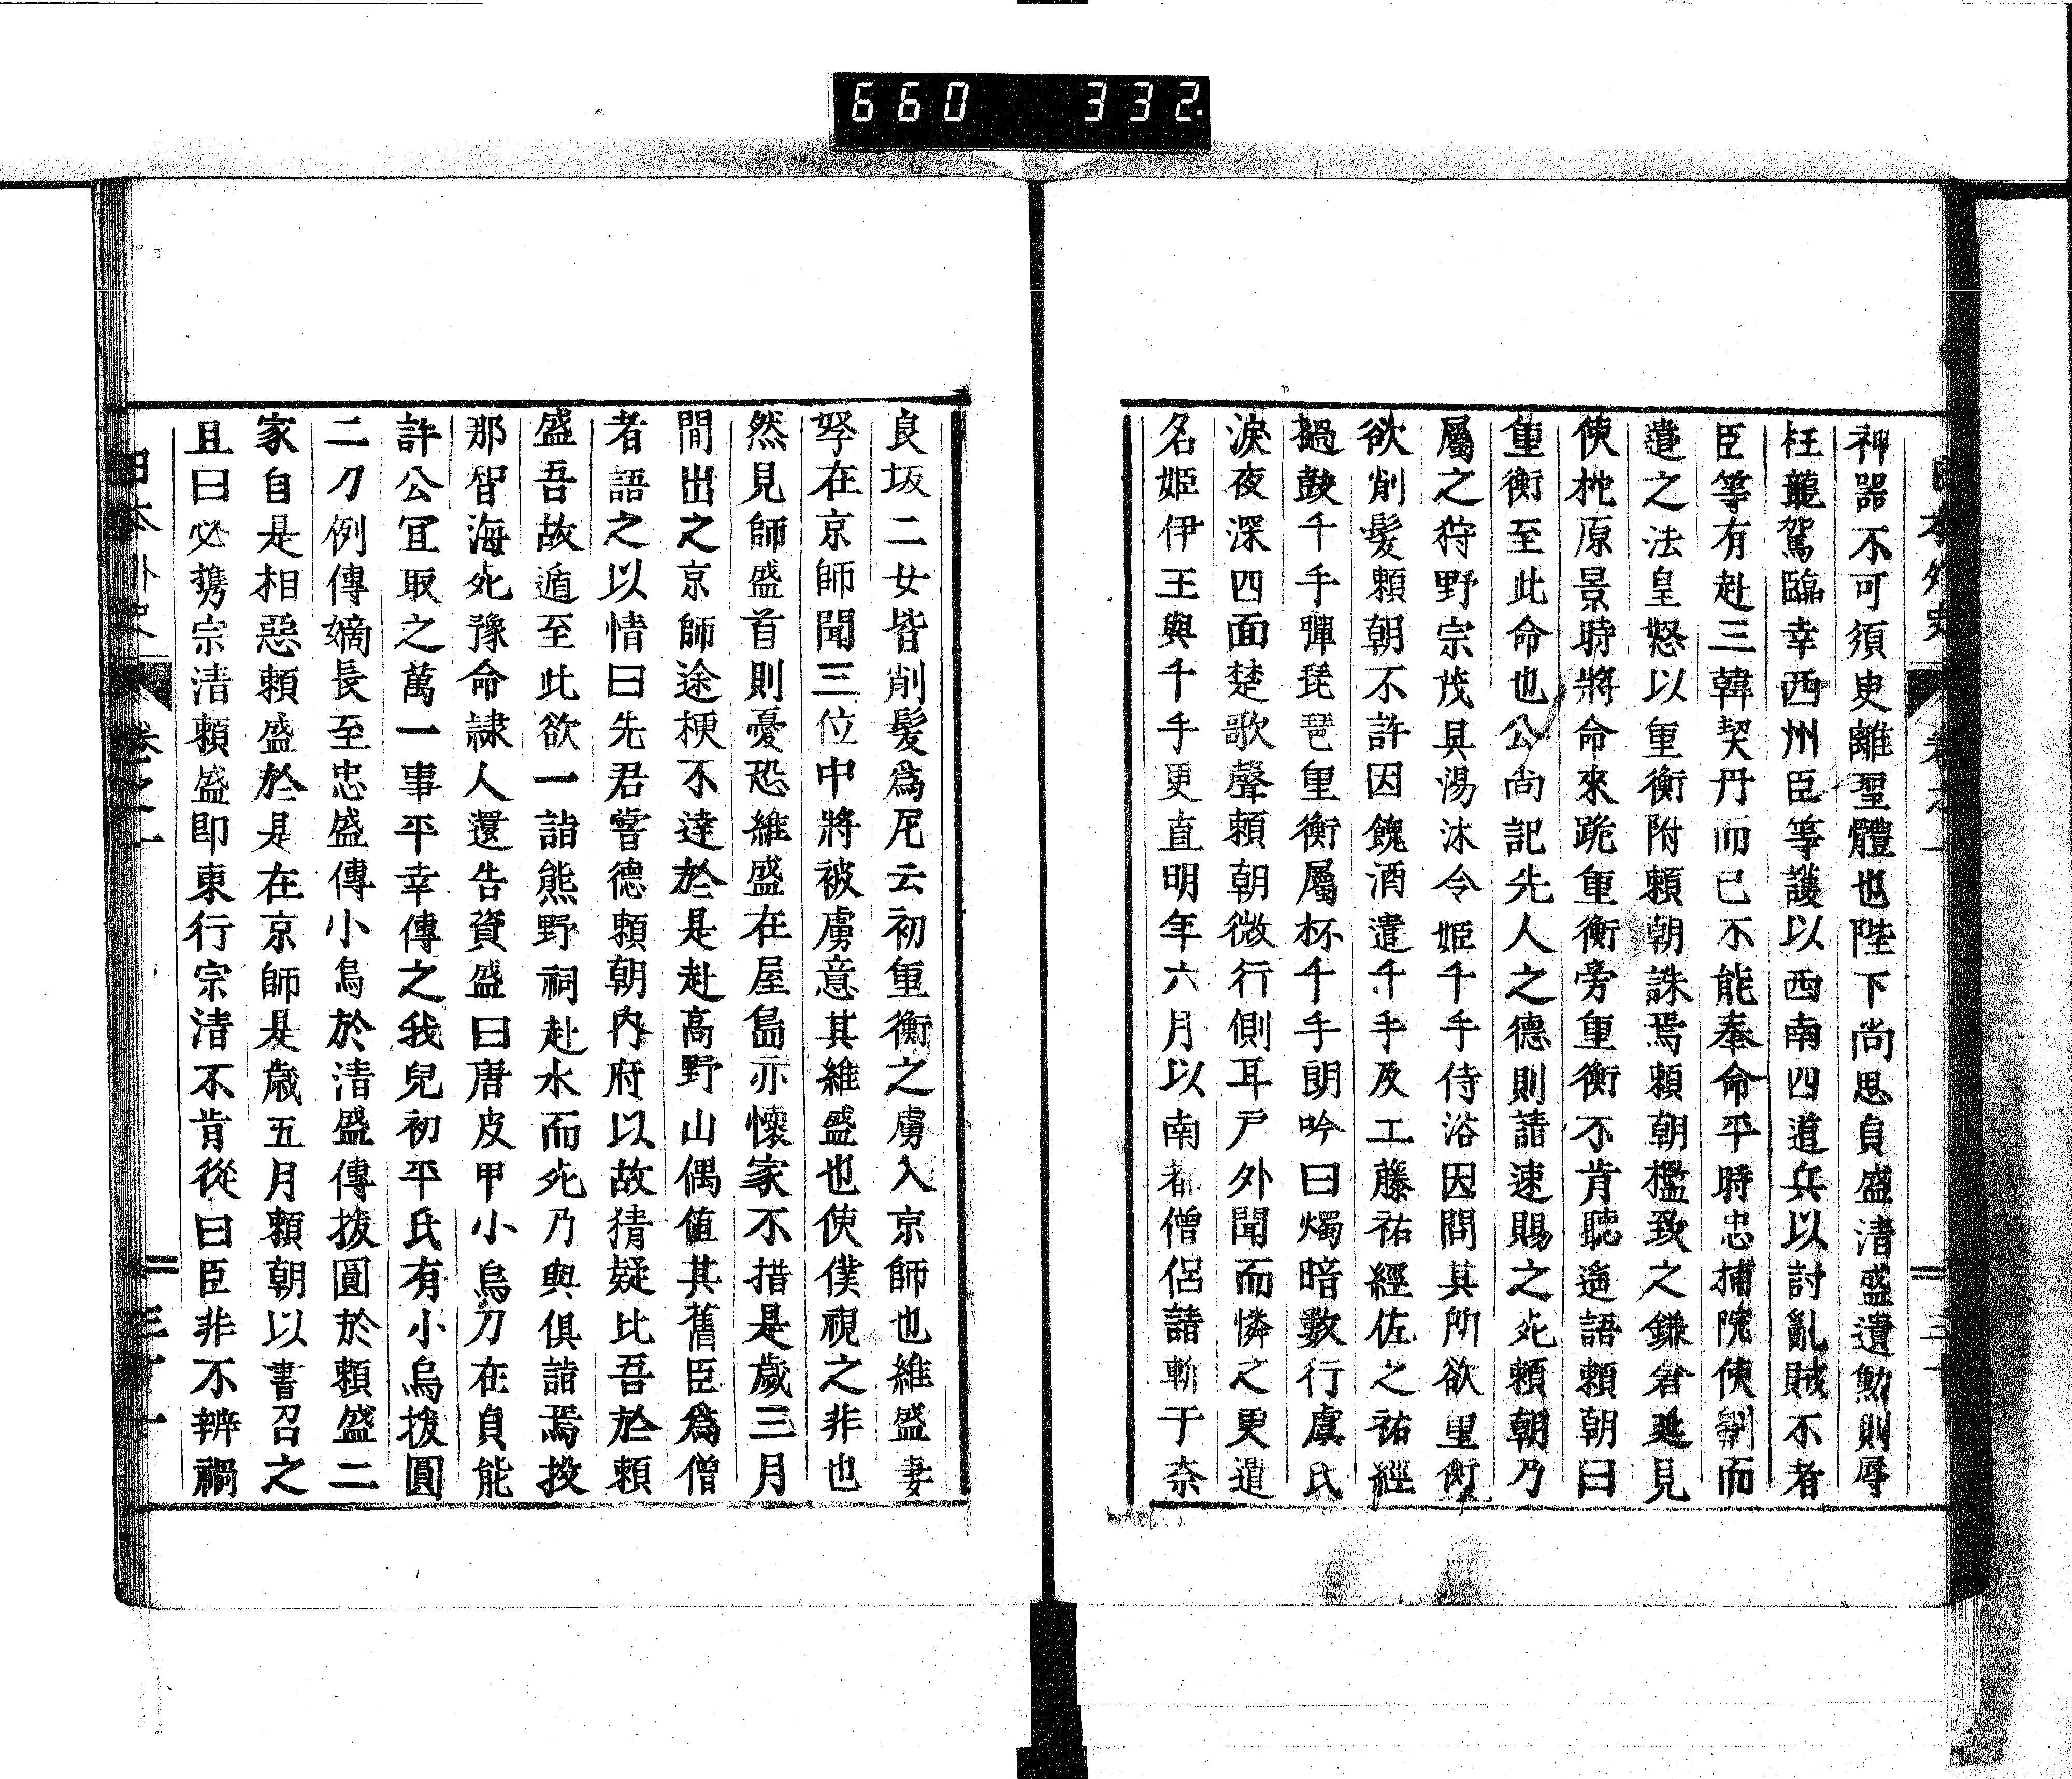 660 332
日本外史 卷之一 三十
神器不可須臾離聖體也陛下尚思貞盛清盛遺勳則辱
枉龍駕臨幸西州臣等護以西南四道兵以討亂賊不者
臣等有赴三韓契丹而已不能奉命平時忠捕院使劓而
遣之法皇怒以重衡附賴朝誅焉賴朝檻致之鎌倉延見
使梶原景時將命來跪重衡旁重衡不肯聽遙語賴朝曰
重衡至此命也公尚記先人之德則請速賜之死賴朝乃
屬之狩野宗茂具湯沐令姬千手侍浴因問其所欲重衡
欲削髮賴朝不許因餽酒遣千手及工藤祐經佐之祐經
撾鼓千手彈琵琶重衡屬杯千手朗吟曰燭暗數行虞氏
淚夜深四面楚歌聲賴朝微行側耳戶外聞而憐之更遣
名姬伊王與千手更直明年六月以南都僧侶請斬于奈
良坂二女皆削髮爲尼云初重衡之虜入京師也維盛妻
孥在京師聞三位中將被虜意其維盛也使僕視之非也
然見師盛首則憂恐維盛在屋島亦懷家不措是歲三月
間出之京師途梗不達於是赴高野山偶値其舊臣爲僧
者語之以情曰先君嘗德賴朝內府以故猜疑比吾於賴
盛吾故遁至此欲一詣熊野祠赴水而死乃與俱詣焉投
那智海死豫命隷人還告資盛曰唐皮甲小烏刀在貞能
許公宜取之萬一事平幸傳之我兒初平氏有小烏拔圓
二刀例傳嫡長至忠盛傳小烏於清盛傳拔圓於賴盛二
家自是相惡賴盛於是在京師是歲五月賴朝以書召之
且曰必携宗清賴盛卽東行宗清不肯從曰臣非不辨禍
日本外史 卷之一 三十一